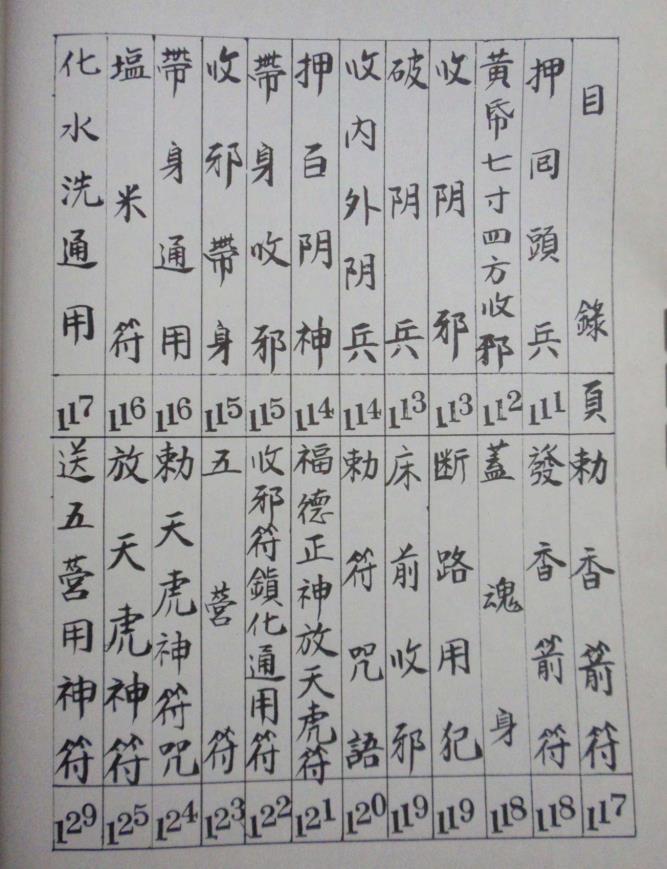 目錄 頁
押回頭兵 111
黃帋七寸四方收邪 112
收阴邪 113
破阴兵 113
收内外阴兵 114
押百阴神 114
帶身收邪 115
收邪帶身 115
帶身通用 116
塩米符 116
化水洗通用 117
勅香箭符 117
發香箭符 118
蓋魂身 118
断路用犯 119
床前收邪 119
勅符咒語 120
福德正神放天虎符 121
收邪符鎮化通用符 122
五營符 123
勅天虎神符咒 124
放天虎神符 125
送五營用神符 129